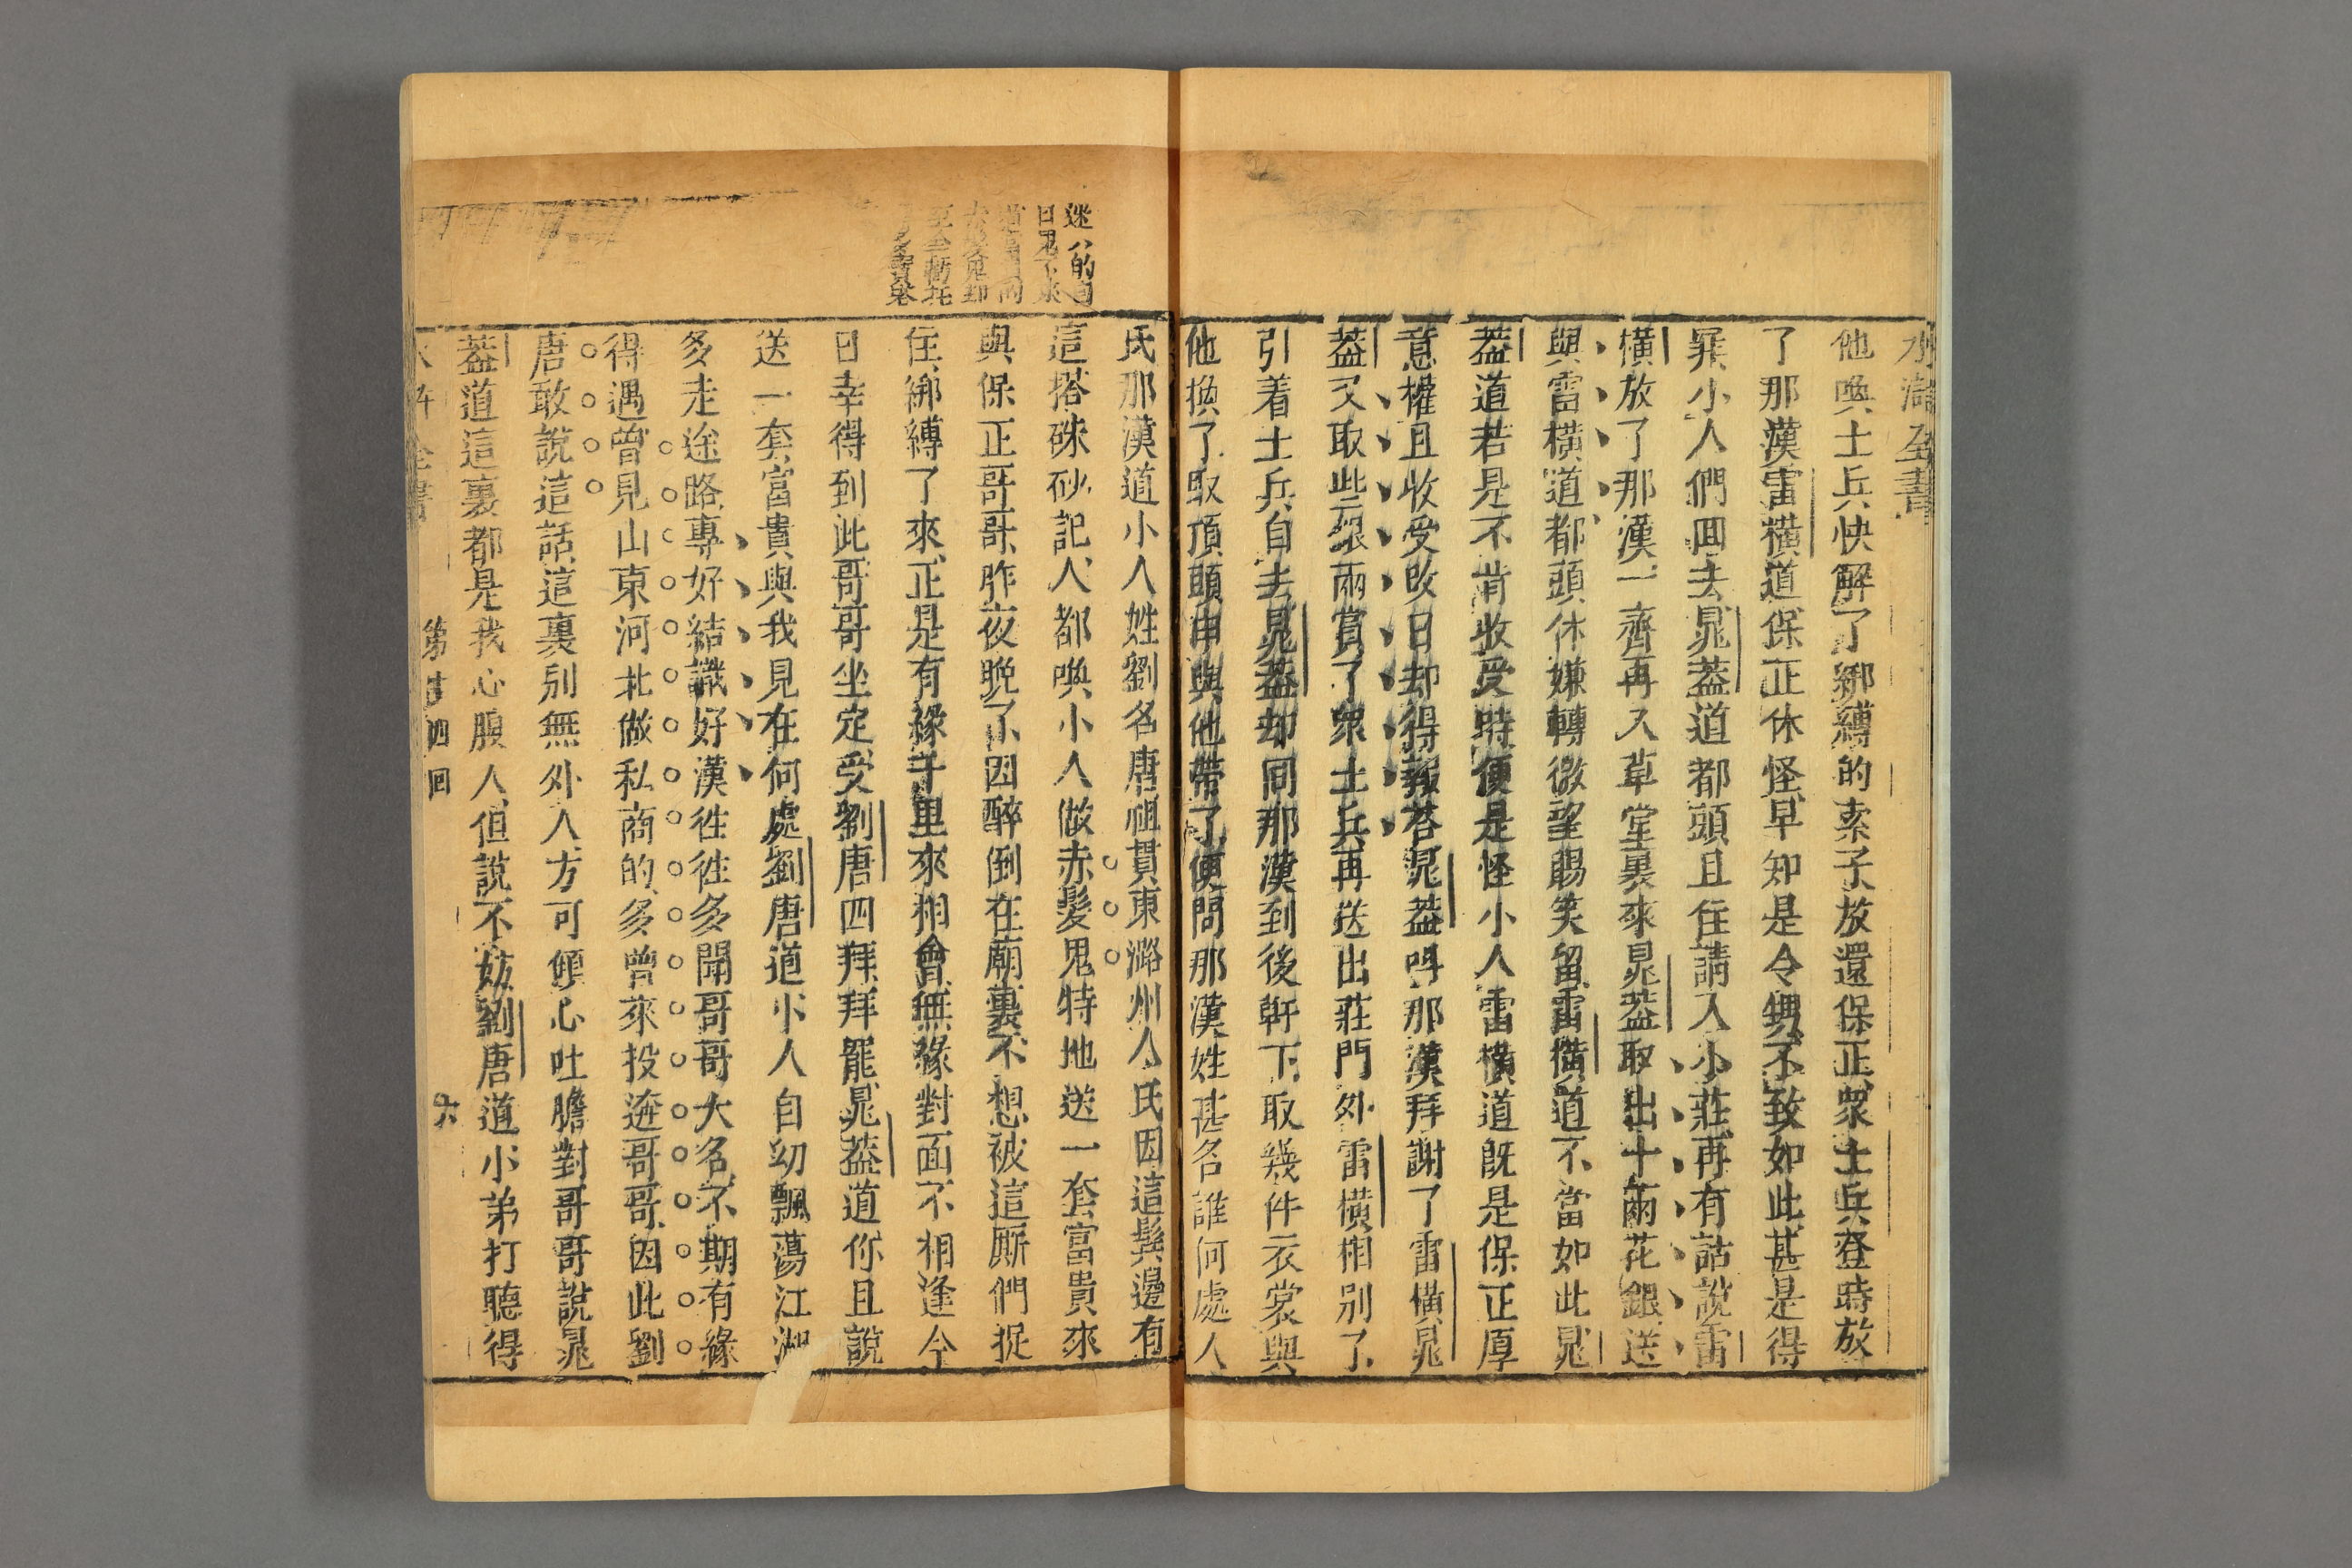 水滸全書
他喚土兵快解了綁縛的索子放還保正衆土兵登時放
了那漢雷橫道保正休怪早知是令甥不致如此甚是得
罪小人們回去晁蓋道都頭且住請入小莊再有話說雷
橫放了那漢一齊再入草堂裏來晁蓋取出十兩花銀送
與雷橫道都頭休嫌轉微望賜笑留雷橫道不當如此晁
蓋道若是不肯收受時便是怪小人雷橫道既是保正厚
意權且收受改日却得報荅晁蓋呌那漢拜謝了雷橫晁
蓋又取些銀兩賞了衆土兵再送出莊門外雷橫相別了
引着土兵自去晁蓋却同那漢到後軒下取幾件衣裳與
他換了取頂頭巾與他帶了便問那漢姓甚名誰何處人
氏那漢道小人姓劉名唐祖貫東潞州人氏因這鬂邊有
這搭硃砂記人都喚小人做赤髮鬼特地送一套富貴來
與保正哥哥昨夜晚了因醉倒在廟裏不想被這厮們捉
住綁縛了來正是有緣千里來相會無緣對面不相逢今
日幸得到此哥哥坐定受劉唐四拜拜罷晁蓋道你且說
送一套富貴與我見在何處劉唐道小人自幼飄蕩江湖
多走途路專好結識好漢徃徃多聞哥哥大名不期有緣
得遇曾見山東河北做私商的多曾來投逩哥哥因此劉
唐敢說這話這裏別無外人方可傾心吐膽對哥哥說晁
蓋道這裏都是我心腹人但說不妨劉唐道小弟打聽得
全書
第十四回
六